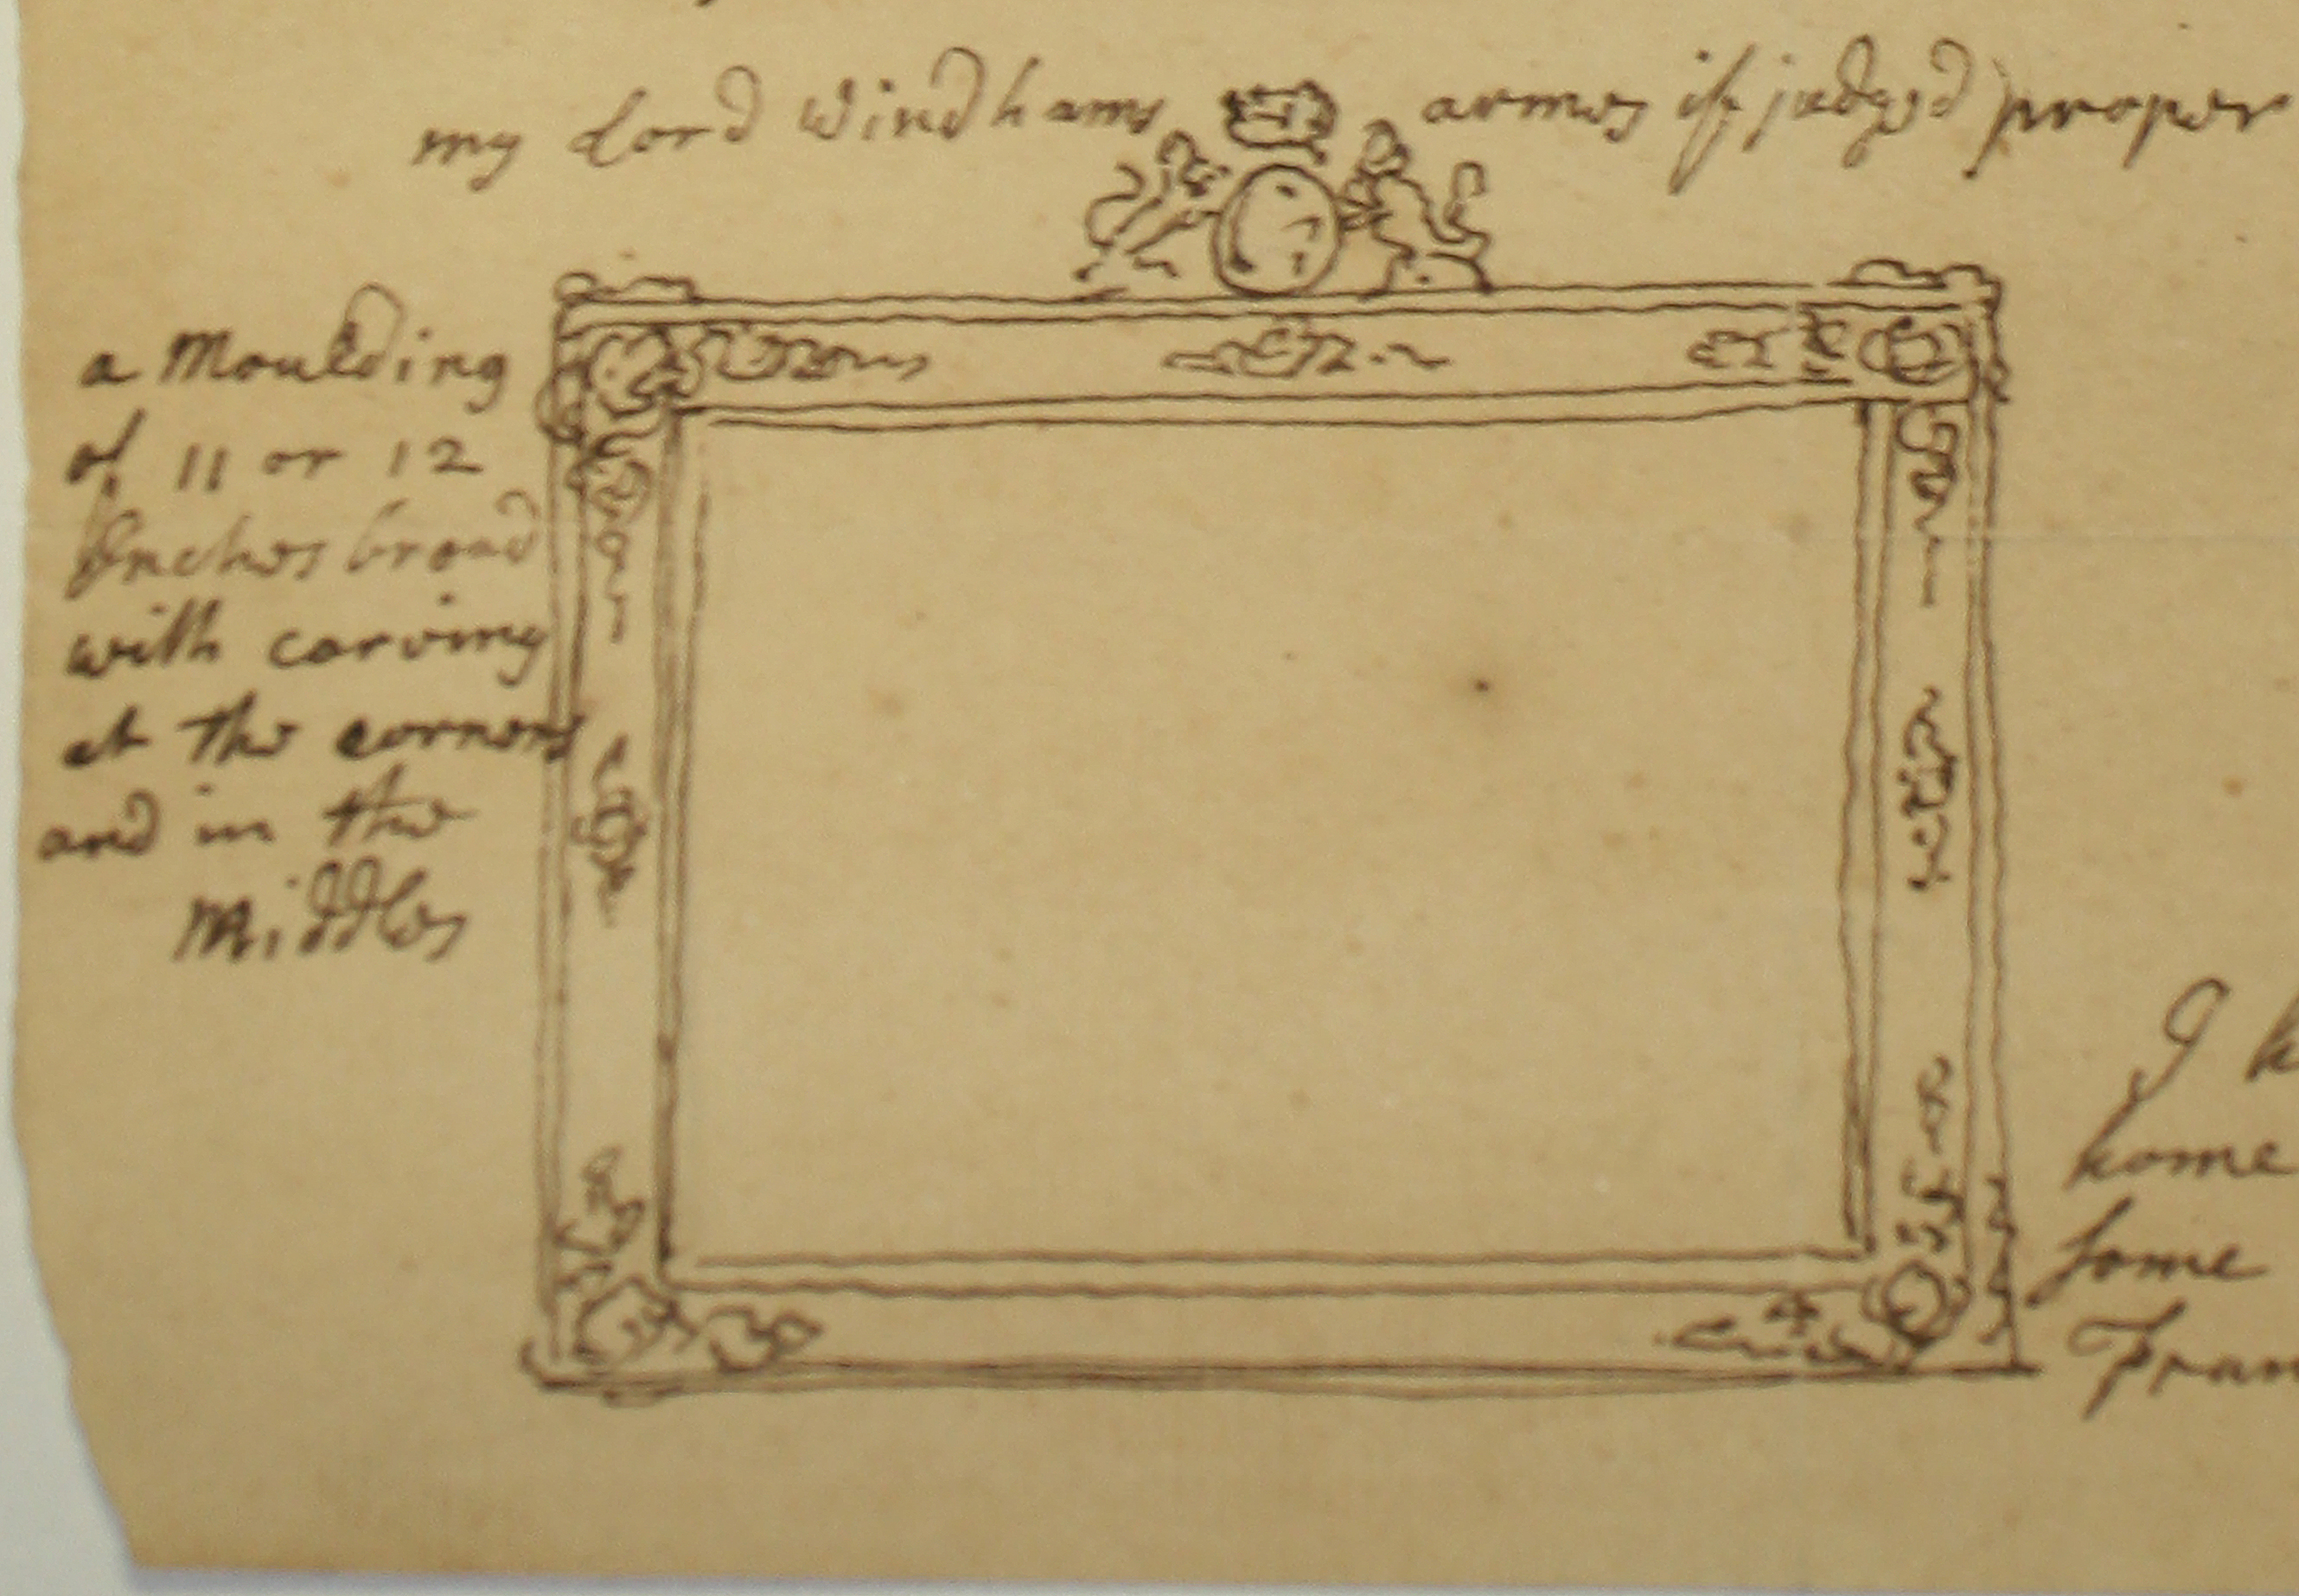 my Lord Windhams armes if judged proper
a Moulding
of 11 or 12
Inches broad
with carving
at the corners
and in the
Middles
I
home
some